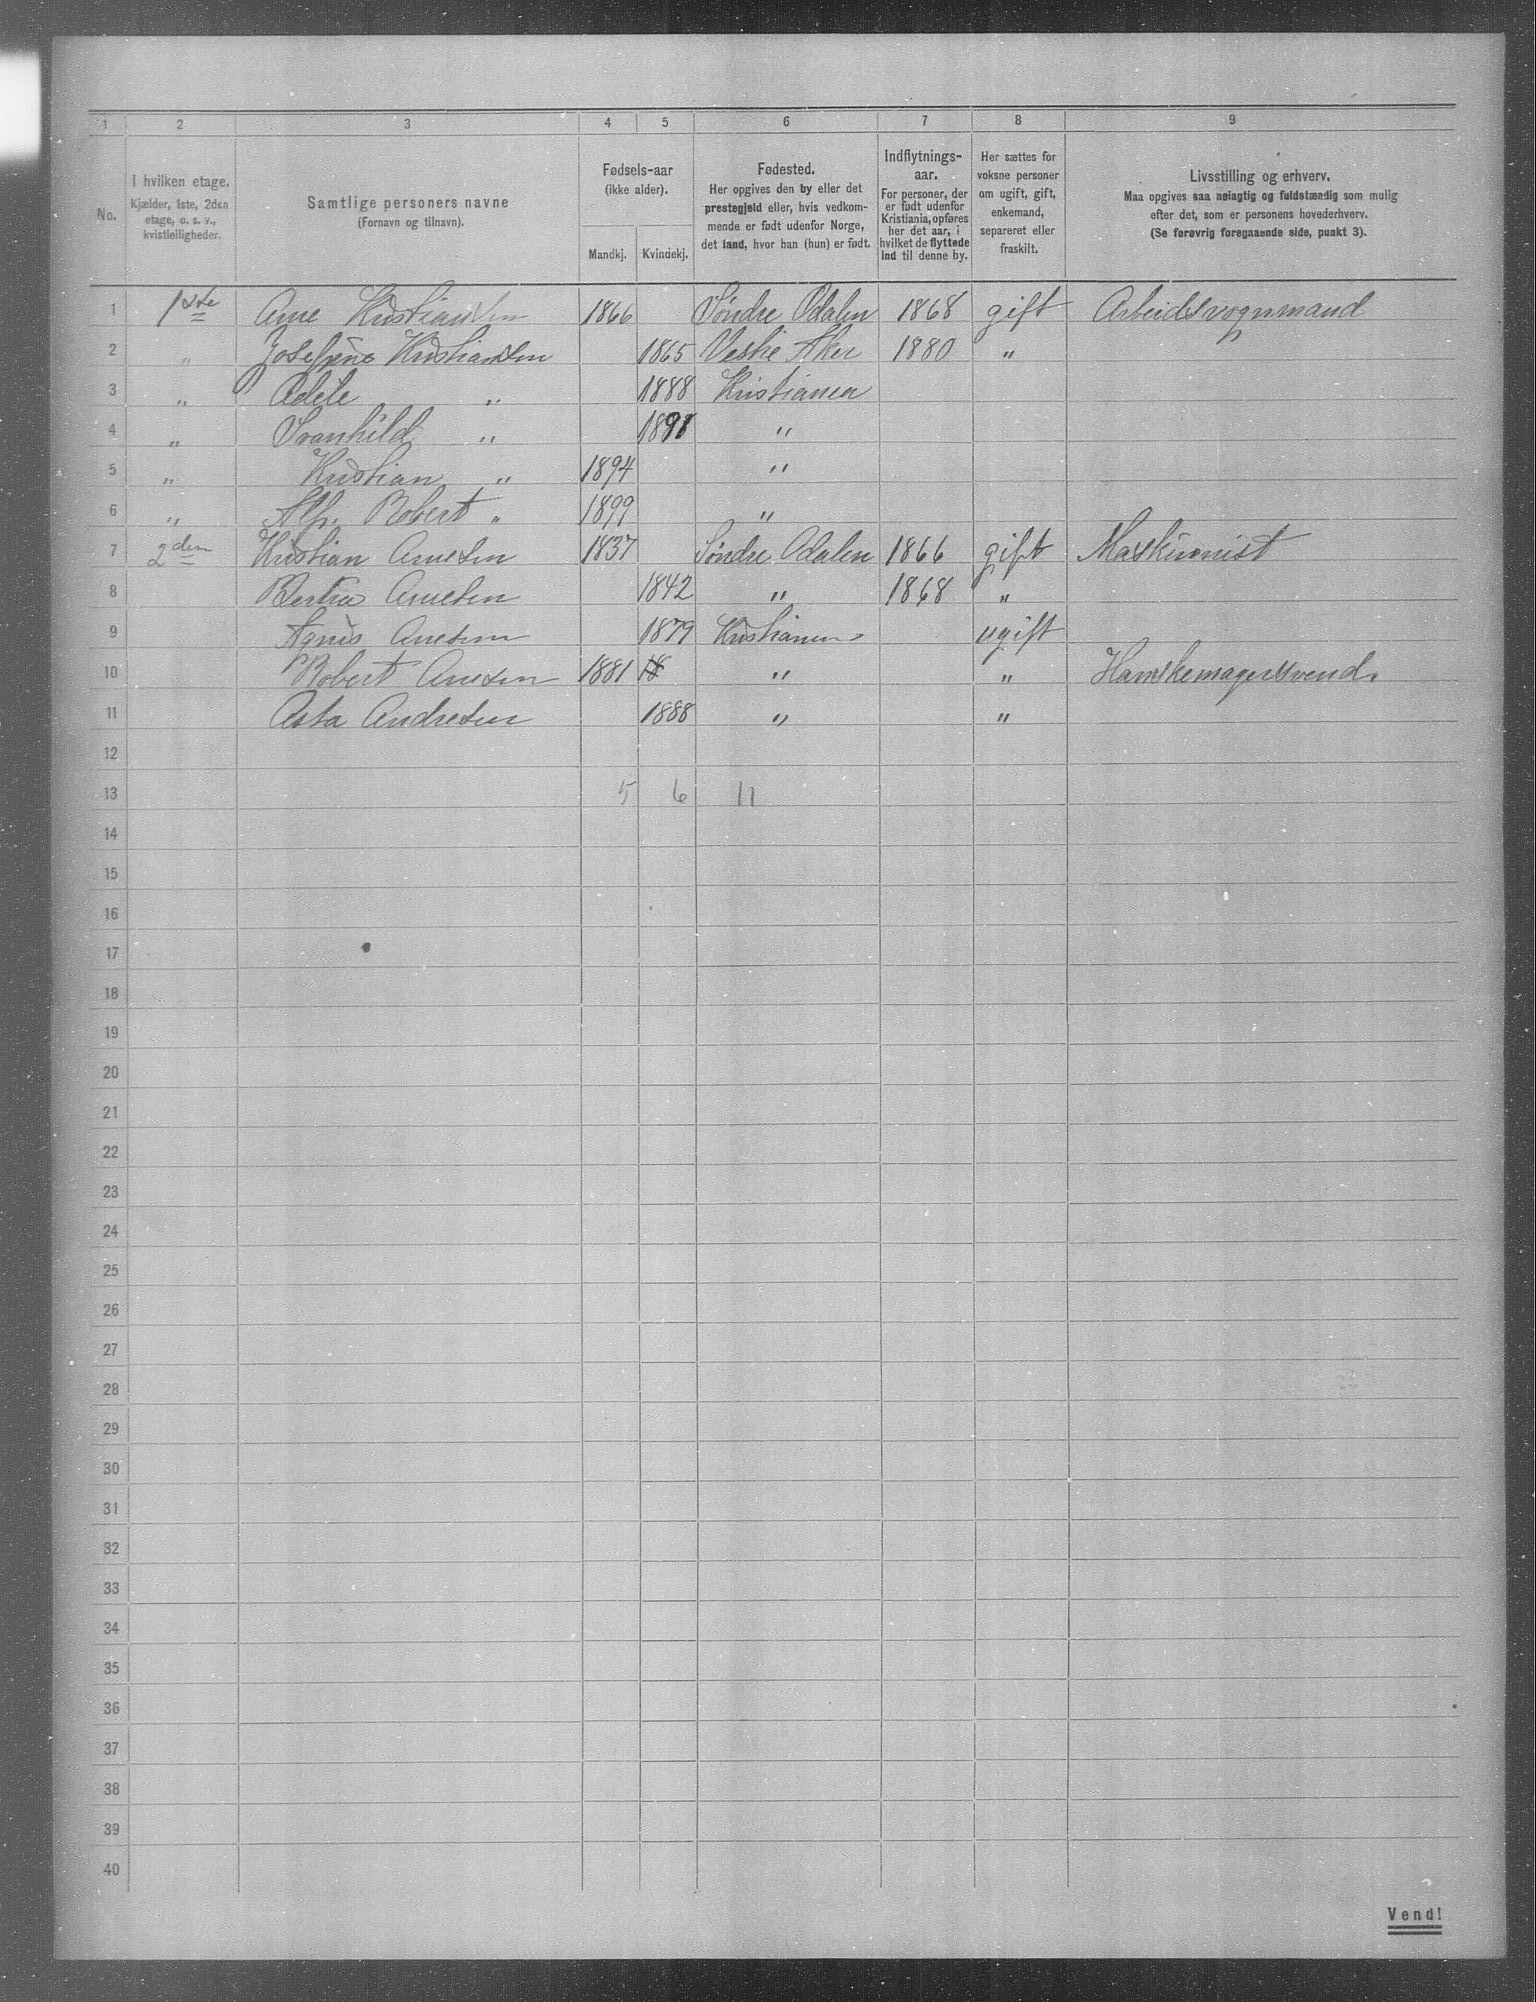 1 2 3 4 5 6 7 8 9
No.
I hvilken etage.
Kjælder, 1ste, 2den
etage, o. s. v.,
kvistleiligheder.
Samtlige personers navne
(Fornavn og tilnavn).
Fødsels-aar
(ikke alder).
Mandkj. Kvindekj.
Fødested.
Her opgives den by eller det
prestegjeld eller, hvis vedkom-
mende er født udenfor Norge,
det land, hvor han (hun) er født.
Indflytnings-
aar.
For personer, der
er født udenfor
Kristiania, opføres
her det aar, i
hvilket de flyttede
ind til denne by.
Her sættes for
voksne personer
om ugift, gift,
enkemand,
separeret eller
fraskilt.
Livsstilling og erhverv.
Maa opgives saa nøiagtig og fuldstændig som mulig
efter det, som er personens hovederhverv.
(Se forøvrig foregaaende side, punkt 3).
1 1ste Arne Kristiansen 1866 Søndre Odalen 1868 gift Arbeidsvognmand
2 " Josefine Kristiansen 1865 Vestre Aker 1880 "
3 " Adele " 1888 Kristiania
4 " Svanhild " 1891 "
5 " Kristian " 1894 "
6 " Alf. Robert " 1899 "
7 2den Kristian Arnesen 1837 Søndre Odalen 1866 gift Maskinnist
8 Bertea Arnesen 1842 " 1868 "
9 Agnis Arnesen 1879 Kristiania ugift
10 Robert Arnesen 1881 18 " " Hanskemagersvend.
11 Asta Andresen 1888 " "
12
13 5 6 11
14
15
16
17
18
19
20
21
22
23
24
25
26
27
28
29
30
31
32
33
34
35
36
37
38
39
40
Vend!